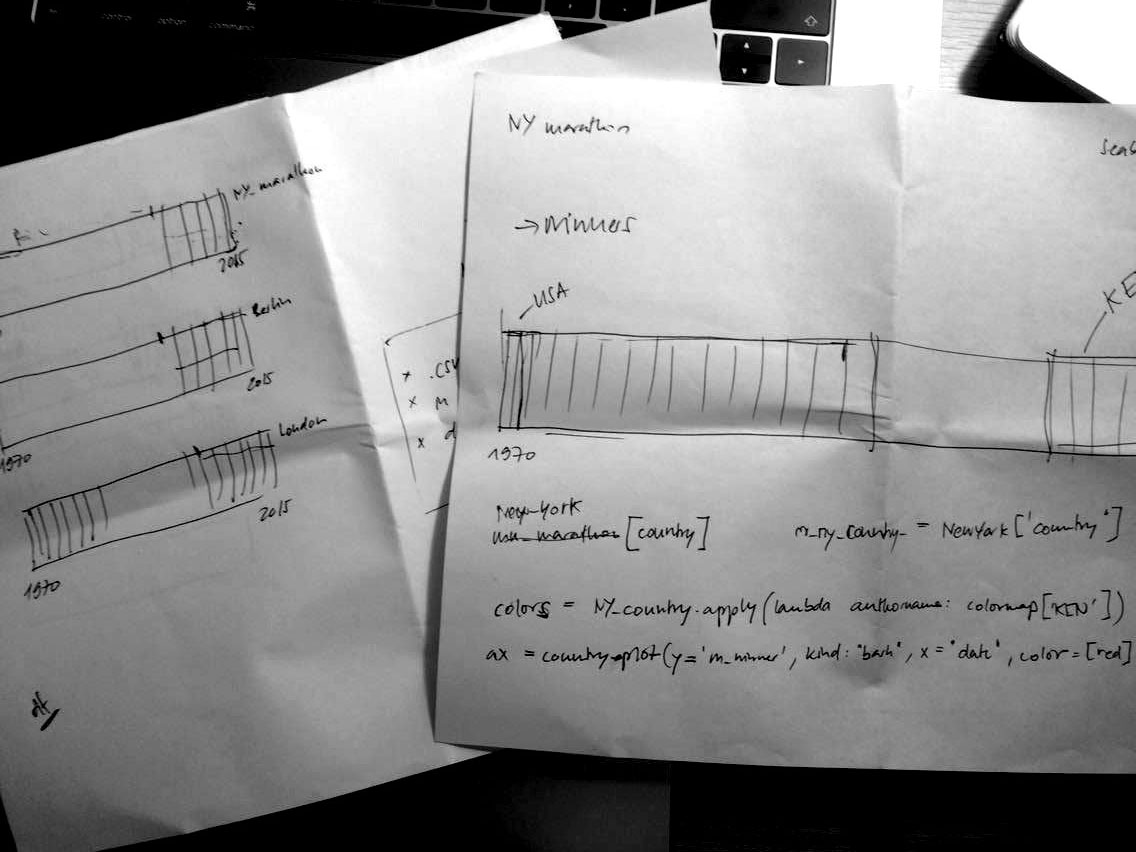 control option command
NY_marathon
2015
Berlin
2015
1970
London
2015
1970
x .CSV
x M
x d
NY marathon
→ Winners
USA
KE
1970
New-York
[country]
m_ny_country_ = NewYork['country']
colors = NY_country.apply(lambda authorname: colormap[KEN'])
ax = country.plot(y='m_winner', kind:"barh", x="date", color=[red]